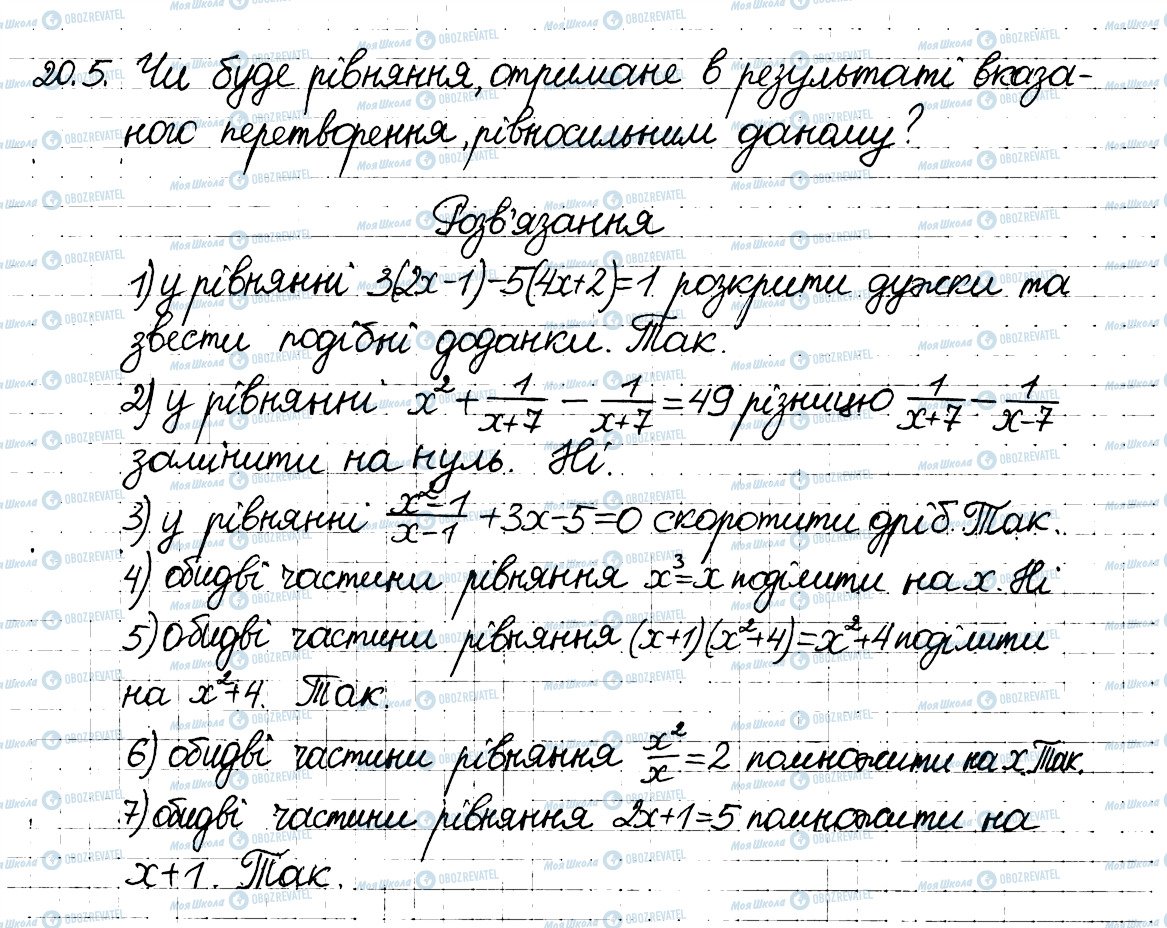 20.5. Чи буде рівняння, отримане в результаті вказа-
ного перетворення, рівносильним даному?
Розв'язання
1) у рівнянні 3(2x-1)-5(4x+2)=1 розкрити дужки та
звести подібні доданки. Так.
2) у рівнянні x²+1/(x+7) - 1/(x+7) =49 різницю 1/(x+7) - 1/(x-7)
замінити на нуль. Ні.
3) у рівнянні (x²-1)/(x-1) +3x-5=0 скоротити дріб. Так.
4) обидві частини рівняння x³=x поділити на x. Ні
5) Обидві частини рівняння (x+1)(x²+4)=x²+4 поділити
на x²+4. Так.
6) обидві частини рівняння x²/x =2 помножити на x. Так.
7) обидві частини рівняння 2x+1=5 помножити на
x+1. Так.